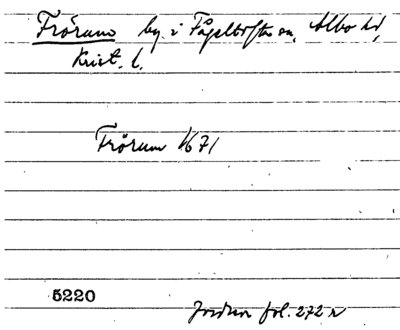 Frörum by i Fågeltofta sn, Albo hd,
Krist. l.
Frörum 1671
5220
Jordebok fol. 272 r